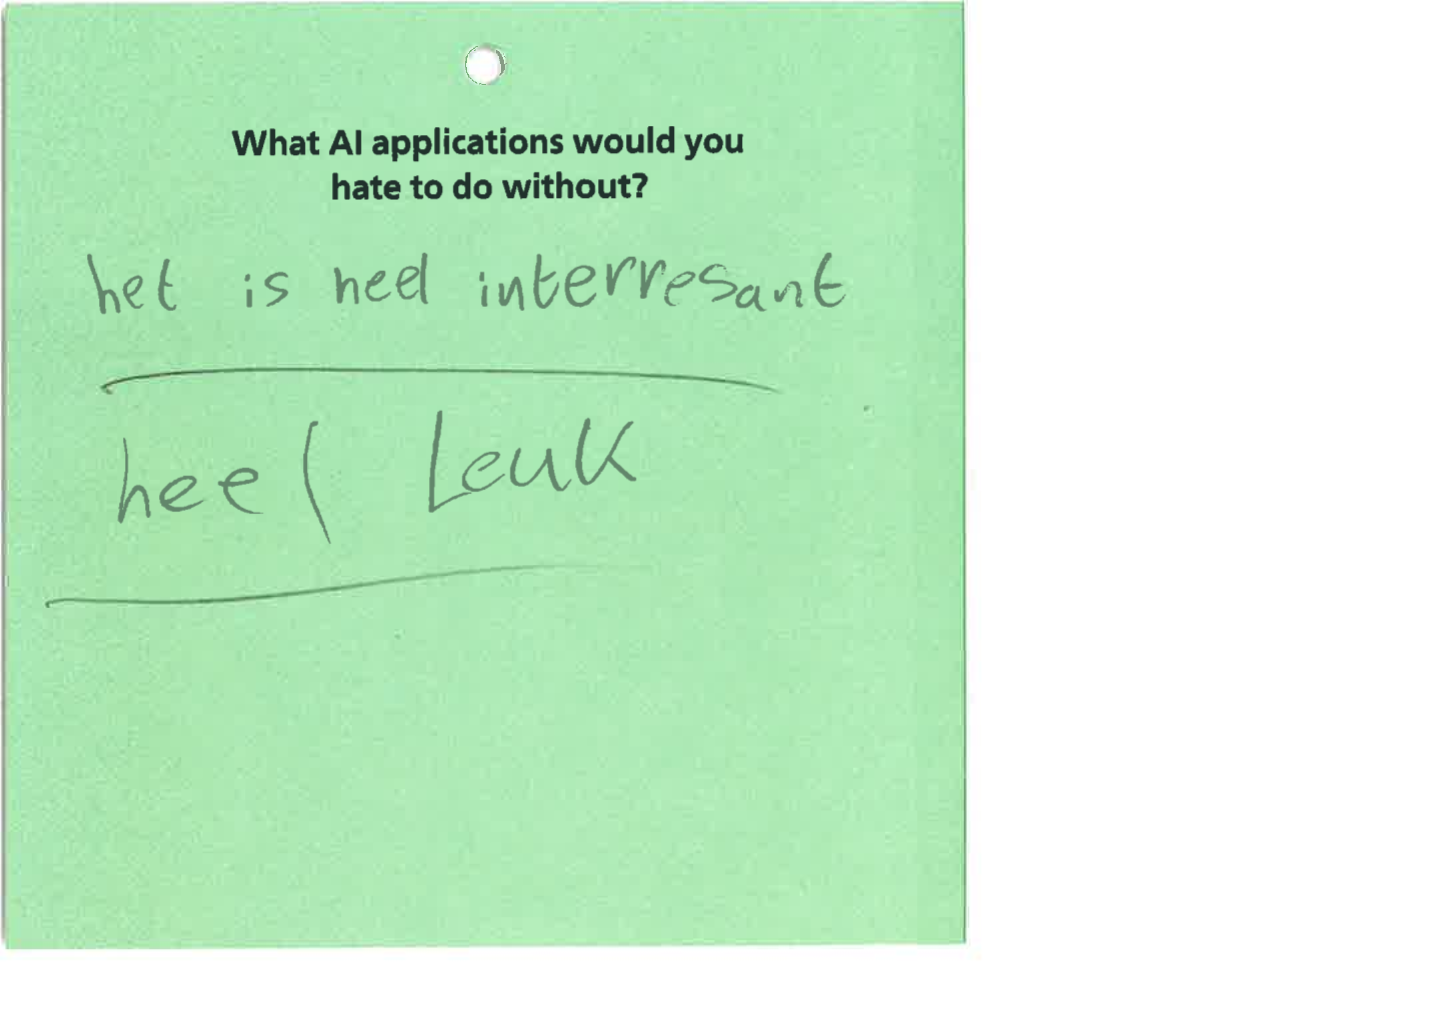 What AI applications would you
hate to do without?
het is heel interresant
heel Leuk